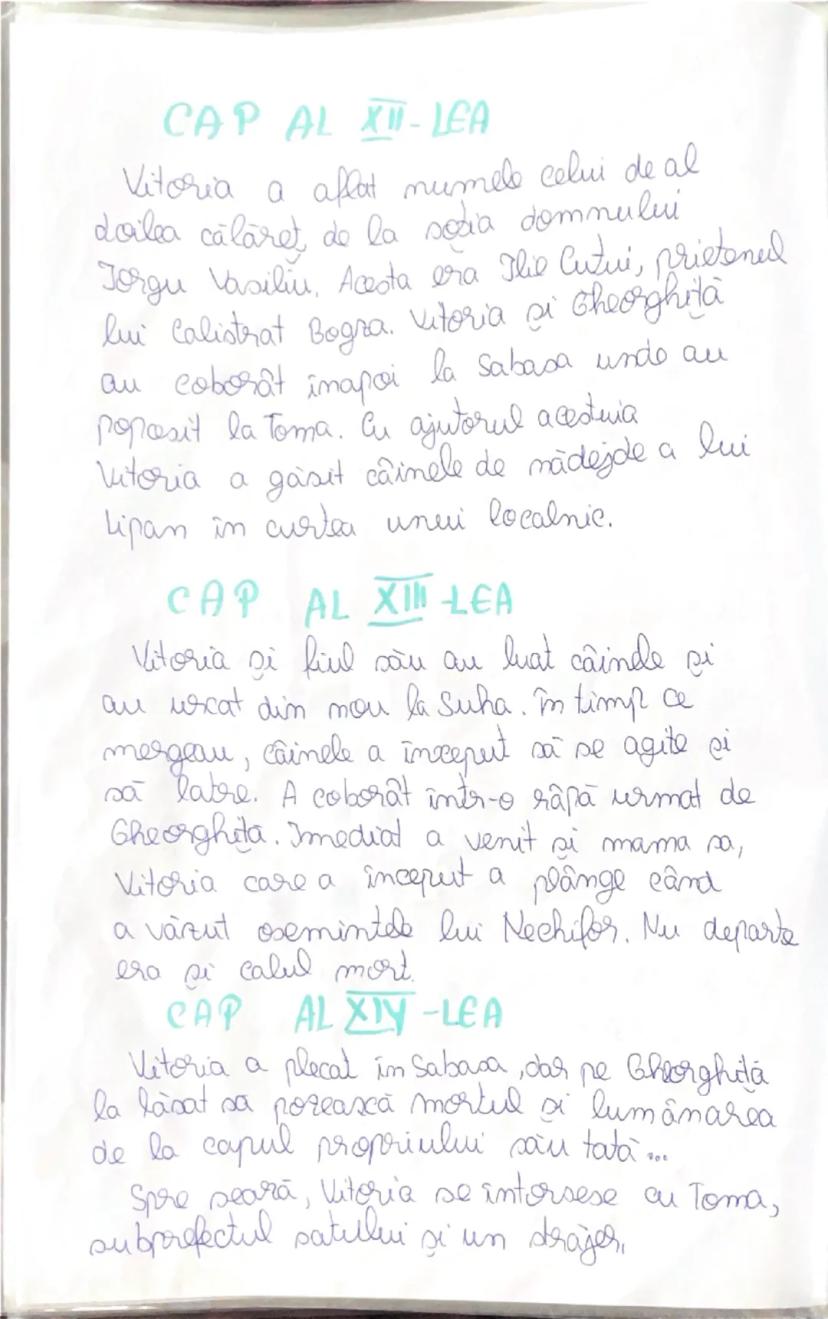 CAP AL XII-LEA
Vitoria a aflat numele celui de al
doilea călăreț de la soția domnului
Iorgu Vasiliu. Acesta era Ilie Cuțui, prietenul
lui Calistrat Bogza. Vitoria și Gheorghiță
au coborât înapoi la Sabasa unde au
popăsit la Toma. Cu ajutorul acestuia
Vitoria a găsit câinele de nădejde a lui
Lipan în curtea unui localnic.
CAP AL XIII-LEA
Vitoria și fiul său au luat câinele și
au urcat din nou la Suha. În timp ce
mergeau, câinele a început să se agite și
să latre. A coborât într-o râpă urmat de
Gheorghiță. Imediat a venit și mama sa,
Vitoria care a început a plânge când
a văzut osemintele lui Nechifor. Nu departe
era și calul mort.
CAP AL XIV-LEA
Vitoria a plecat în Sabasa, dar pe Gheorghiță
la lăsat să pozească mortul și lumânarea
de la capul propriului său tată...
Spre seară, Vitoria se întorsese cu Toma,
subprefectul satului și un străjer,